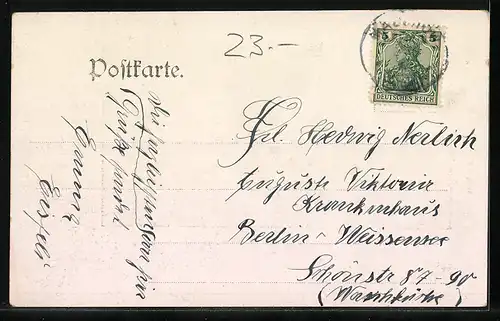 23.-
Postkarte.
5 5
DEUTSCHES REICH
Frl. Hedwig Nerlich
Auguste Viktoria
Krankenhaus
Berlin-Weissensee
Schönstr 87-90
(Waschküche)
Grüße sendet
Emma